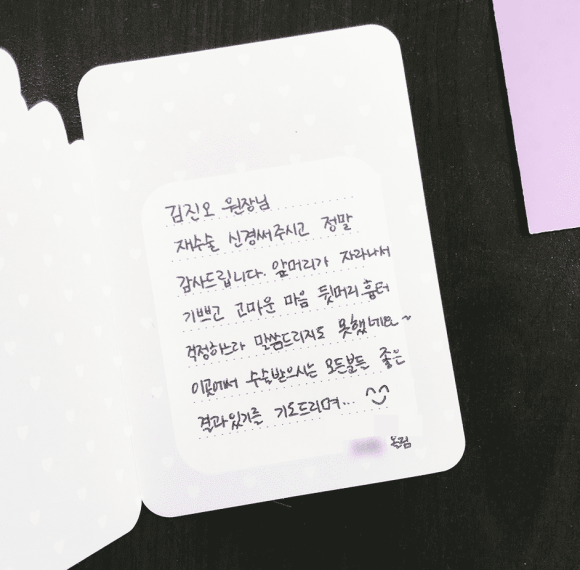 김진오 원장님
재수술 신경써주시고 정말
감사드립니다. 앞머리가 자라나서
기쁘고 고마운 마음 뒷머리 흉터
걱정하느라 말씀드리지도 못했네요~
이곳에서 수술받으시는 모든분들 좋은
결과있기를 기도드리며...
올림